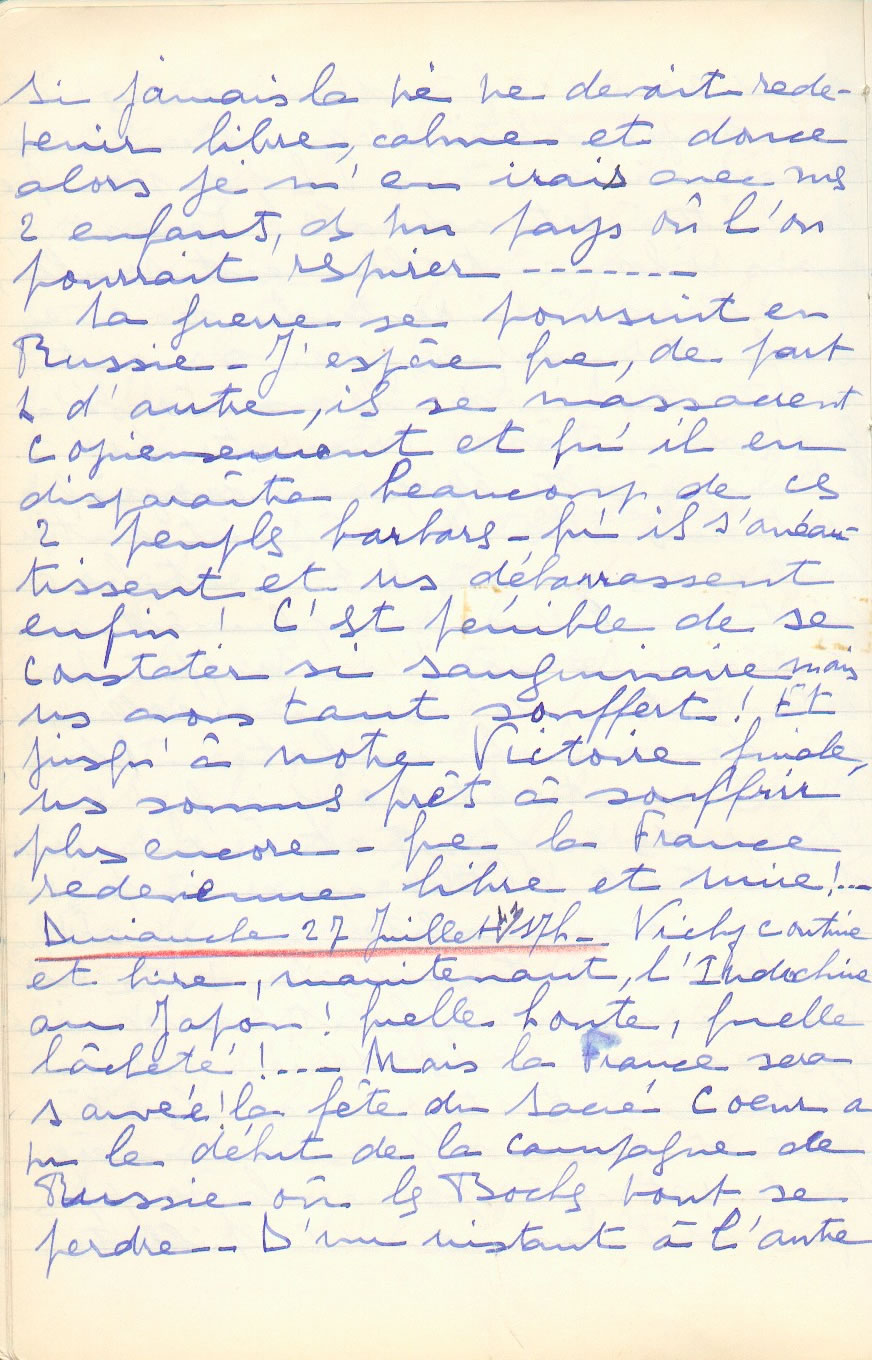 si jamais la vie ne devait rede-
venir libre, calme et douce
alors je m'en irais avec mes
2 enfants, ds un pays où l'on
pourrait respirer -------
La guerre se poursuit en
Russie - J'espère que, de part
& d'autre, ils se massacrent
copieusement et qu'il en
disparaîtra beaucoup de ces
2 peuples barbares - qu'ils s'anéan-
tissent et ns débarrassent
enfin ! C'est pénible de se
constater si sanguinaire mais
ns avons tant souffert ! Et
jusqu'à notre Victoire finale,
ns sommes prêts à souffrir
plus encore - que la France
redevienne libre et unie !...
Dimanche 27 Juillet 41 17h - Vichy continue
et livre, maintenant, l'Indochine
au Japon ! quelle honte, quelle
lâcheté !... Mais la France sera
sauvée ! la fête du Sacré Coeur a
vu le début de la campagne de
Russie où les Boches vont se
perdre -- D'un instant à l'autre